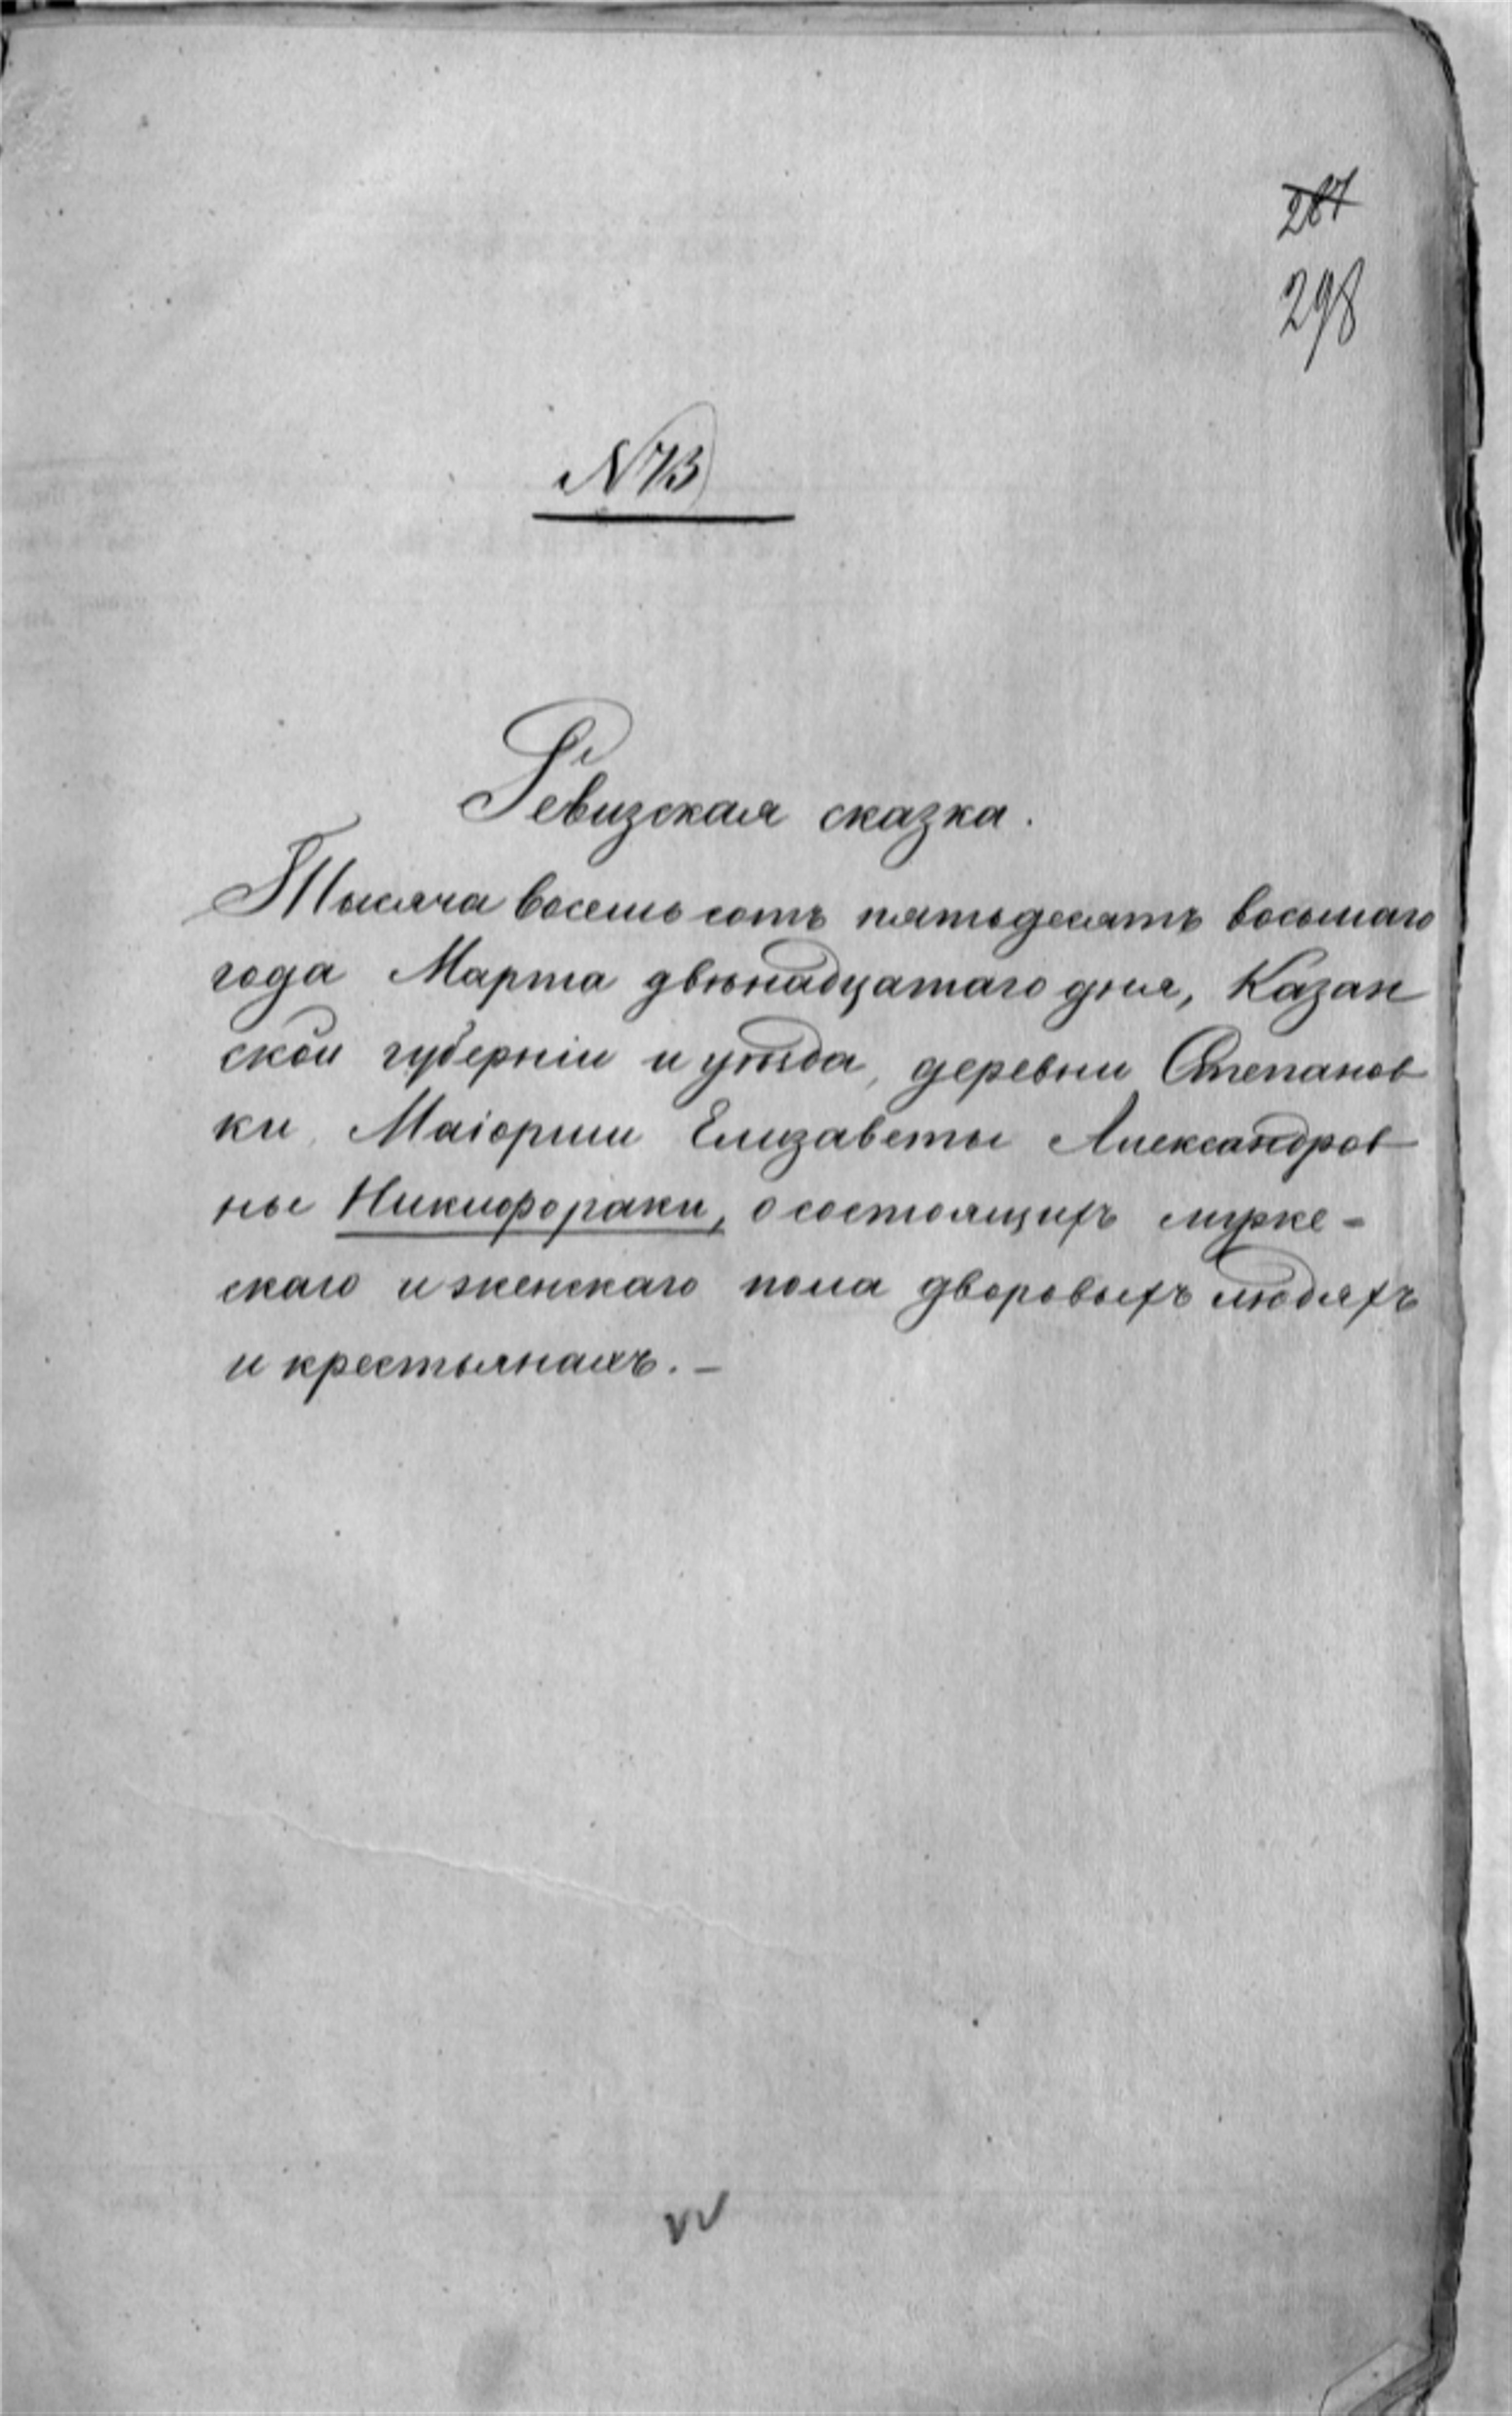 287
298
N 73
Ревизская сказка.
Тысяча восемь сотъ пятьдесятъ восьмаго
года Марта двѣнадцатаго дня, Казан
ской губерніи и уѣзда, деревни Степанов
ки, Маіорши Елизаветы Александров
ны Никифораки, о состоящихъ мужс-
скаго и женскаго пола дворовыхъ людяхъ
и крестьянахъ. –